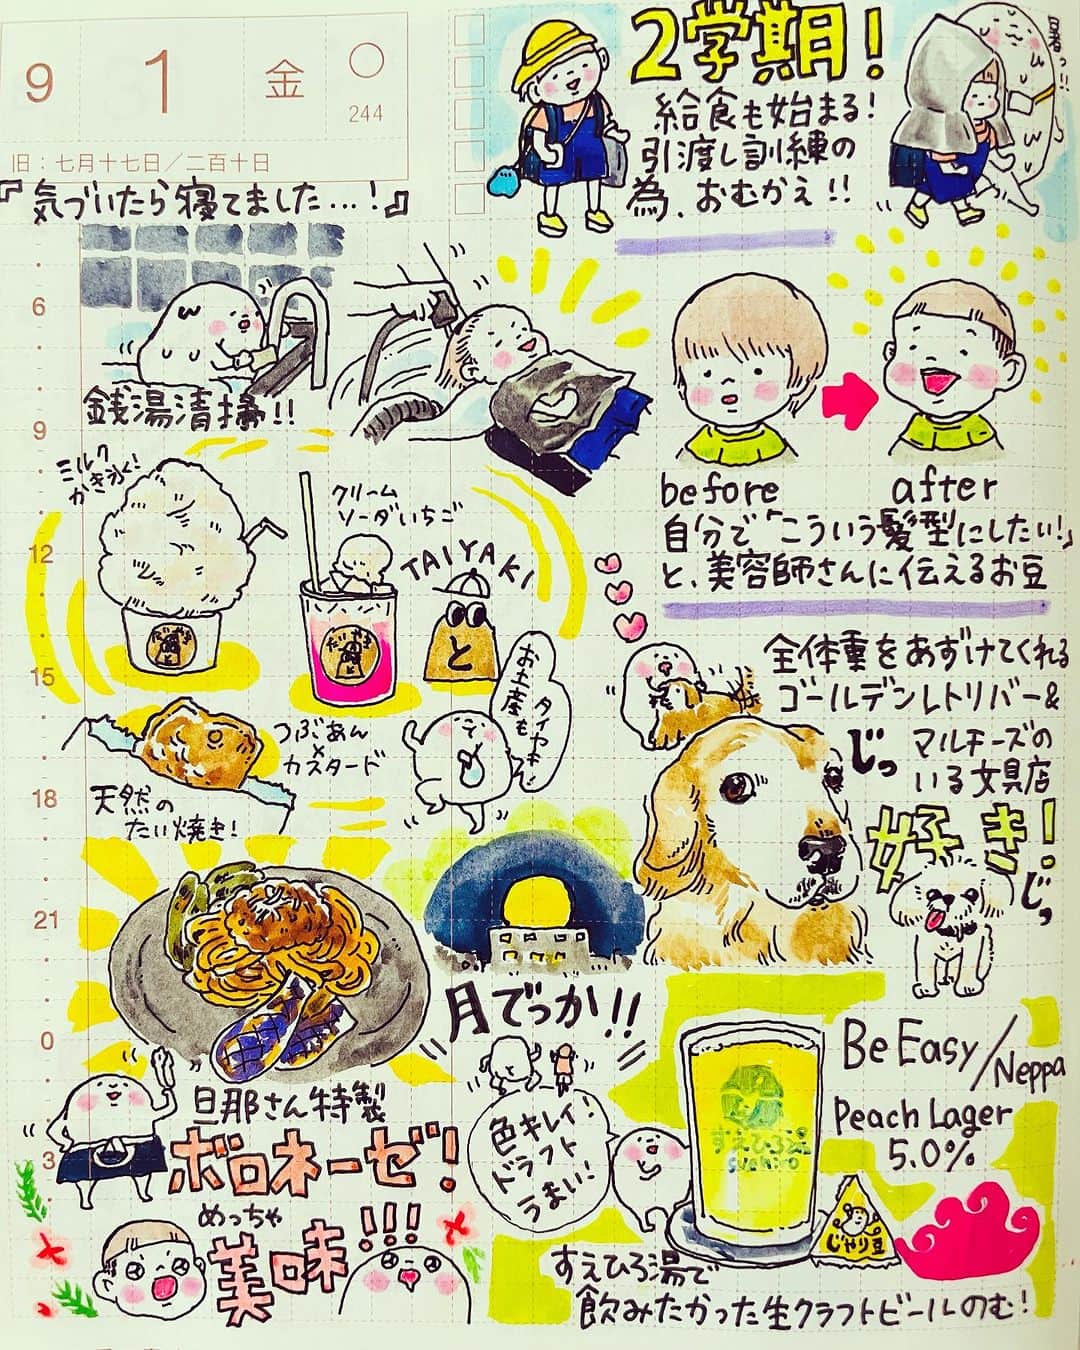 9
1
金
244
旧：七月十七日／二百十日
『気づいたら寝てました...！』
2学期！
給食も始まる！
引渡し訓練の
為、おむかえ！！
暑っ!!
6
9
12
15
18
21
0
3
銭湯清掃!!
before
after
自分で「こういう髪型にしたい！」
と、美容師さんに伝えるお豆
ミルク
かき氷！
クリーム
ソーダいちご
TAIYAKI
たいやき
と
たいやき
と
と
お土産も
タイヤキ！
つぶあん
×
カスタード
天然の
たい焼き！
全体重をあずけてくれる
ゴールデンレトリバー&
マルチーズの
いる文具店
好き！
じっ
じっ
月でっか!!
旦那さん特製
ボロネーゼ！
めっちゃ
美味!!!
色キレイ！
ドラフト
うまい！
Be Easy/Neppa
Peach Lager
5.0%
すえひろ湯
suehiro
じゃり豆
すえひろ湯で
飲みたかった生クラフトビールのむ！